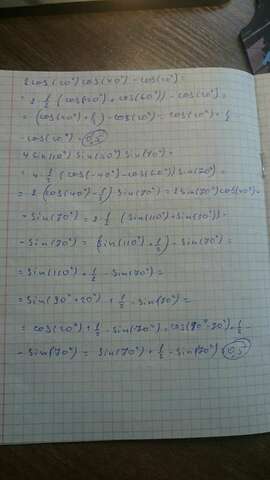 2cos(20°)cos(40°)-cos(20°)=
= 2·1/2 (cos(20°)+cos(60°))-cos(20°)=
= (cos(20°)+1/2)-cos(20°)=cos(20°)+1/2-
-cos(20°)=0,5
4sin(10°)sin(50°)sin(70°)=
= 4·1/2 (cos(-40°)-cos(60°))sin(70°)=
= 2(cos(40°)-1/2)sin(70°)=2sin(70°)cos(40°)-
-sin(70°)=2·1/2 (sin(110°)+sin(30°))-
-sin(70°)= (sin(110°)+1/2)-sin(70°)=
= sin(110°)+1/2-sin(70°)=
= sin(90°+20°)+1/2-sin(70°)=
= cos(20°)+1/2-sin(70°)=cos(90°-70°)+1/2-
-sin(70°)= sin(70°)+1/2-sin(70°)=0,5